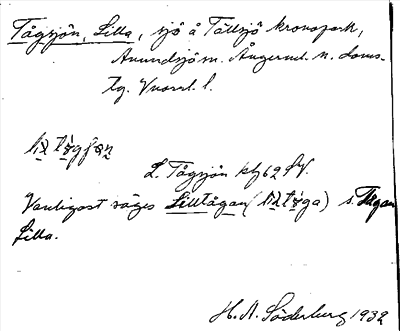 Tågsjön, Lilla, sjö å Tällsjö kronopark,
Anundsjö sn. Ångerml. n. doms-
lg. Vnorrl. l.
L. Tågsjön kbl 62 SV.
Vanligast säges Lilltågan ( ) s. Tågan
Lilla.
H. A. Söderberg 1932